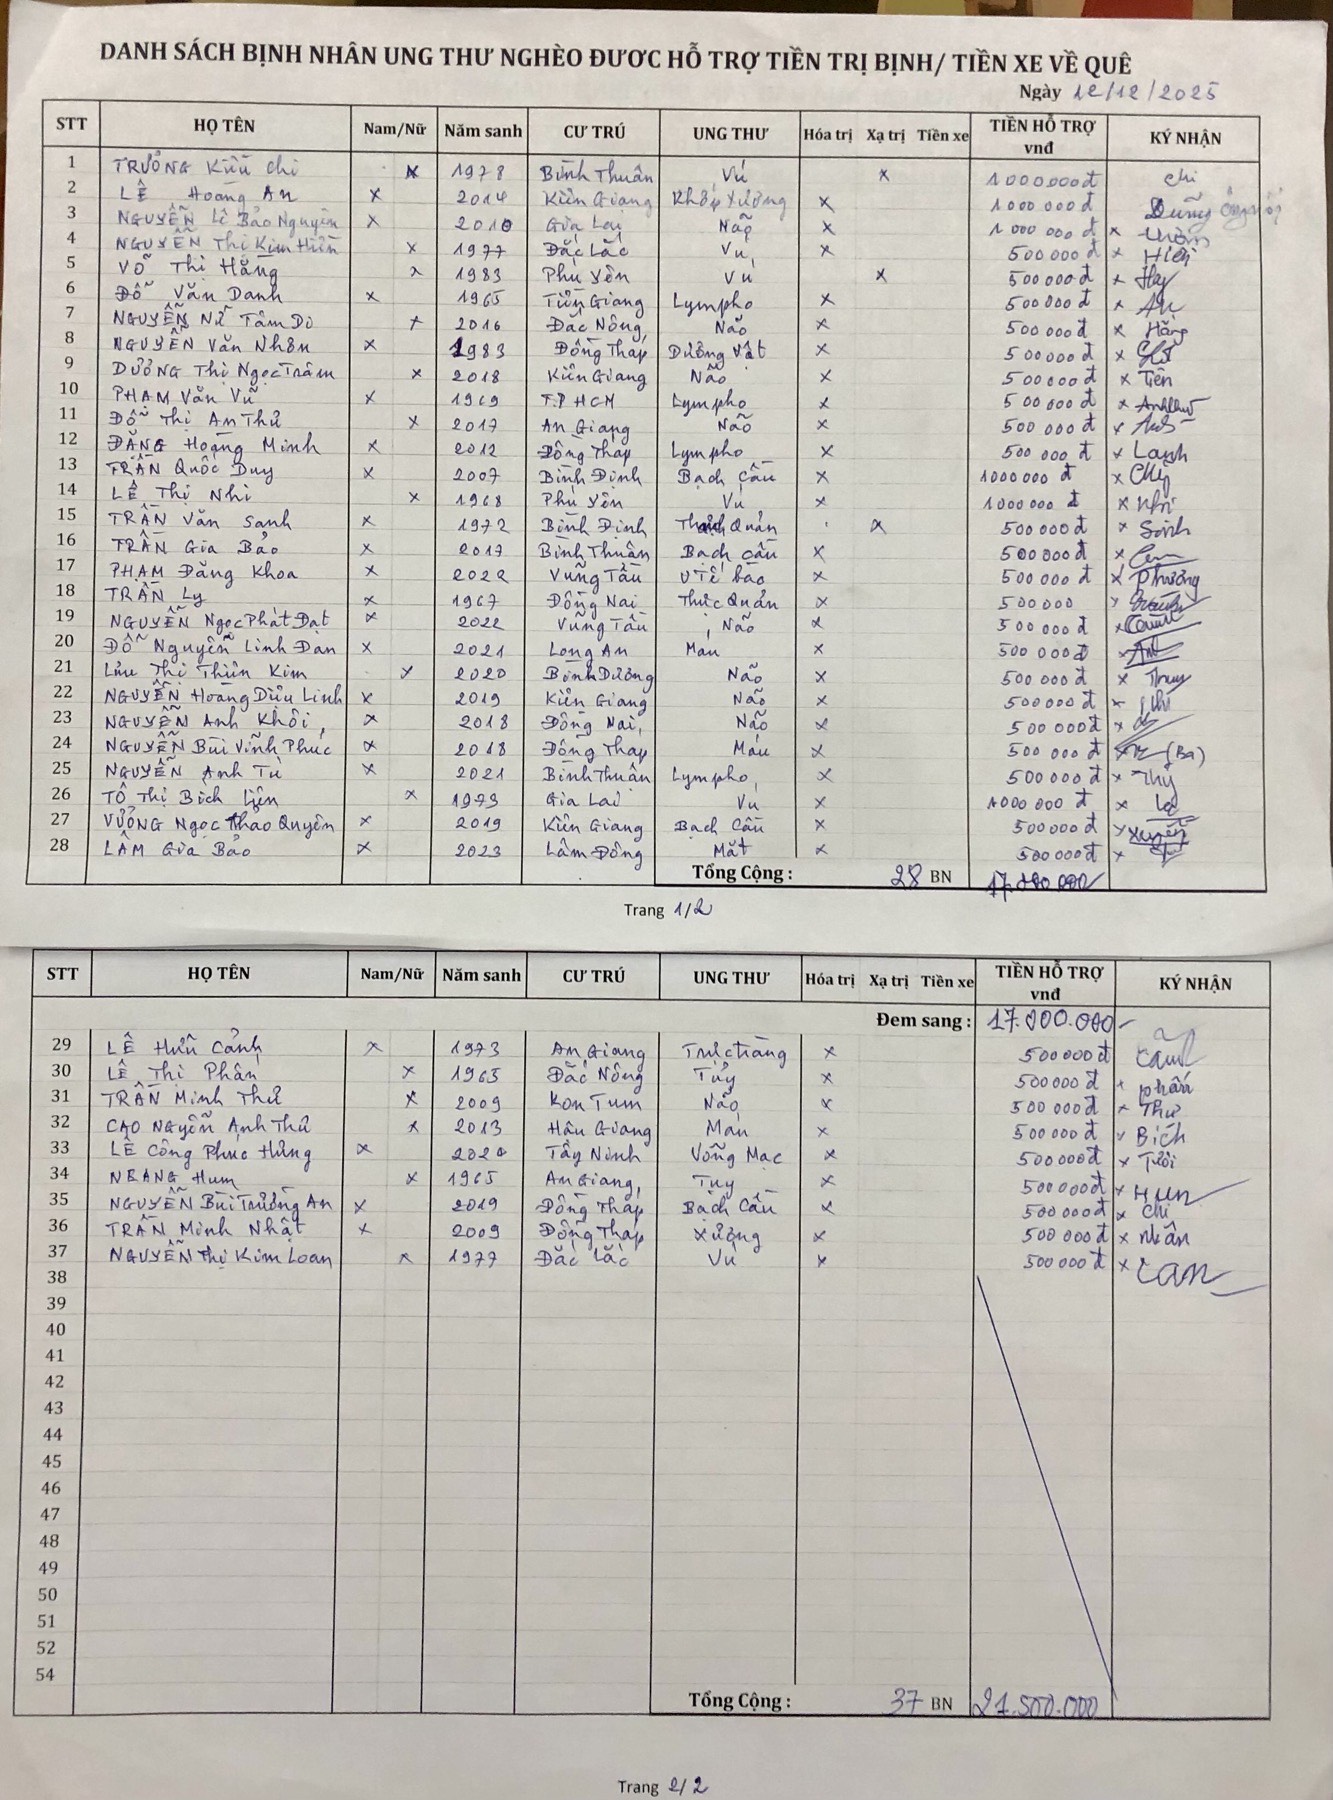 DANH SÁCH BỊNH NHÂN UNG THƯ NGHÈO ĐƯƠC HỖ TRỢ TIỀN TRỊ BỊNH/ TIỀN XE VỀ QUÊ
Ngày 12/12/2025
STT HỌ TÊN Nam/Nữ Năm sanh CƯ TRÚ UNG THƯ Hóa trị Xạ trị Tiền xe TIỀN HỖ TRỢ vnđ KÝ NHẬN
1 TRƯƠNG Kiều Chi x 1978 Bình Thuân Vú x 1000000đ chi
2 LÊ Hoàng An x 2014 Kiên Giang Khớp Xương x 1000 000 đ Dũng
3 NGUYỄN Lê Bảo Nguyên x 2010 Gia Lai Não x 1000 000 đ x
4 NGUYỄN Thị Kim Hiền x 1977 Đắc Lắc Vú x 500000 đ x Hiền
5 VÕ Thị Hằng x 1983 Phú Yên Vú x 500 000đ x
6 ĐỖ Văn Danh x 1965 Tiền Giang Lympho x 500000 đ x
7 NGUYỄN Nữ Tâm Đo x 2016 Đắc Nông Não x 500 000đ x Hằng
8 NGUYỄN Văn Nhơn x 1983 Đồng Tháp Dương Vật x 500000 đ x
9 DƯƠNG Thị Ngọc Trâm x 2018 Kiên Giang Não x 500 000 đ x Tiên
10 PHẠM Văn Vũ x 1969 T.P HCM Lympho x 500 000 đ x
11 ĐỖ Thị An Thư x 2017 An Giang Não x 500 000 đ x
12 ĐẶNG Hoàng Minh x 2012 Đồng Tháp Lympho x 500 000 đ x Lanh
13 TRẦN Quốc Duy x 2007 Bình Định Bạch Cầu x 1000000 đ x
14 LÊ Thị Nhi x 1968 Phú Yên Vú x 1000000 đ x Nhi
15 TRẦN Văn Sanh x 1972 Bình Định Thanh Quản x 500000đ x Sanh
16 TRẦN Gia Bảo x 2017 Bình Thuân Bạch Cầu x 500000đ x
17 PHẠM Đăng Khoa x 2022 Vũng Tàu U Tế bào x 500000 đ x Phương
18 TRẦN Ly x 1967 Đồng Nai Thực Quản x 500000 x
19 NGUYỄN Ngọc Phát Đạt x 2022 Vũng Tàu Não x 500 000đ x
20 ĐỖ Nguyễn Linh Đan x 2021 Long An Máu x 500 000đ x
21 Lưu Thị Thiên Kim x 2020 Bình Dương Não x 500 000đ x Thuy
22 NGUYỄN Hoàng Diệu Linh x 2019 Kiên Giang Não x 500000 đ x
23 NGUYỄN Anh Khôi x 2018 Đồng Nai Não x 500000đ x
24 NGUYỄN Bùi Vĩnh Phúc x 2018 Đồng Tháp Máu x 500 000 đ x (Ba)
25 NGUYỄN Anh Tú x 2021 Bình Thuận Lympho x 500000 đ x Thy
26 TÔ Thị Bích Liên x 1973 Gia Lai Vú x 1000 000 đ x
27 VƯƠNG Ngọc Thảo Quyên x 2019 Kiên Giang Bạch Cầu x 500000đ x
28 LÂM Gia Bảo x 2023 Lâm Đồng Mắt x 500000đ x
Tổng Cộng : 28 BN 17.000.000
Trang 1/2
STT HỌ TÊN Nam/Nữ Năm sanh CƯ TRÚ UNG THƯ Hóa trị Xạ trị Tiền xe TIỀN HỖ TRỢ vnđ KÝ NHẬN
Đem sang : 17.000.000
29 LÊ Hữu Cảnh x 1973 An Giang Trực tràng x 500000đ
30 LÊ Thị Phấn x 1965 Đắc Nông Tủy x 500000 đ x phấn
31 TRẦN Minh Thư x 2009 Kon Tum Não x 500 000đ x Thư
32 CAO Nguyễn Anh Thư x 2013 Hậu Giang Máu x 500000đ x Bích
33 LÊ Công Phúc Hưng x 2020 Tây Ninh Võng Mạc x 500000đ x Tươi
34 NEANG Hum x 1965 An Giang Tuy x 500000đ x Hum
35 NGUYỄN Bùi Trường An x 2019 Đồng Tháp Bạch Cầu x 500000đ x Chi
36 TRẦN Minh Nhật x 2009 Đồng Tháp Xương x 500 000đ x nhân
37 NGUYỄN Thị Kim Loan x 1977 Đắc Lắc Vú x 500000 đ x
38
39
40
41
42
43
44
45
46
47
48
49
50
51
52
54
Tổng Cộng : 37 BN 21.500.000
Trang 2/2